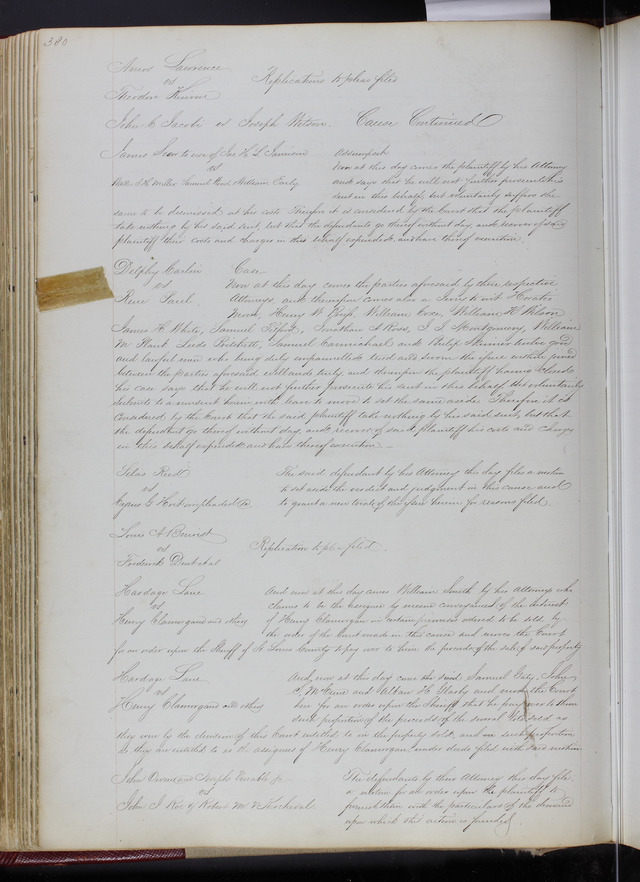 380
Lawrence
vs Replications to pleas filed
Theodore
John C Jacobi vs Joseph Wilson. Cause Continued
James to use of H L Jamison Assumpsit
vs Now at this day comes the plaintiff by his Attorney
Miller Samuel William Early and says that he will not further prosecute his
suit in this behalf, but voluntarily suffers the
same to be dismissed at his costs. Therefore it is considered by the Court that the plaintiff
take nothing by his said suit, but that the defendants go thereof without day and recover of said
plaintiff their costs and charges in this behalf expended and have thereof execution.
Delphy Carlin Case
vs Now at this day comes the parties aforesaid by their respective
Rene Paul. Attorneys, and thereupon comes also a Jury to wit Horatio
Henry William Coxe, William H Wilson
James H White, Samuel Jonathan A Ross, J J Montgomery, William
M Plant Samuel Carmichael and Philip twelve good
and lawful men who being duly empannelled tried and sworn the issue within joined
between the parties aforesaid and thereupon the plaintiff having closed
his case says that he will not further prosecute his suit in this behalf but voluntarily
submits to a nonsuit herein with leave to move to set the same aside. Therefore it is
considered by the Court that the said plaintiff take nothing by his said suit, but that
the defendant go thereof without day and recover of said plaintiff his costs and charges
in this behalf expended and have thereof execution
Silas Reed The said defendant by his Attorney this day files a motion
vs to set aside the verdict and judgment in this cause and
Cyrus G impleaded to grant a new trial of the issue herein for reasons filed.
Louis A Benoist
vs Replication to plea filed.
Frederick Dent et al
Hardage Lane And now at this day comes William Smith by his Attorney who
vs claims to be the assignee by mesne conveyances of the interest
Henry Clamorgan and others of Henry Clamorgan in certain premises ordered to be sold by
the order of the Court made in this cause and moves the Court
for an order upon the Sheriff of St Louis County to pay over to him the proceeds of the sale of said property
Hardage Lane And now at this day come the said Samuel Gaty, John
vs S McCune and and move the Court
Henry Clamorgan and others here for an order upon the Sheriff that he pay over to them
such proportion of the proceeds of the several lots sold as
they were by the decision of this Court entitled to in the property sold, and in such proportion
as they are entitled to as the assignees of Henry Clamorgan under deeds filed with said motion
John and Joseph jr The defendants by their Attorney this day file
vs a motion for an order upon the plaintiff to
John J & Robert M furnish them with the particulars of the demand
upon which this action is founded